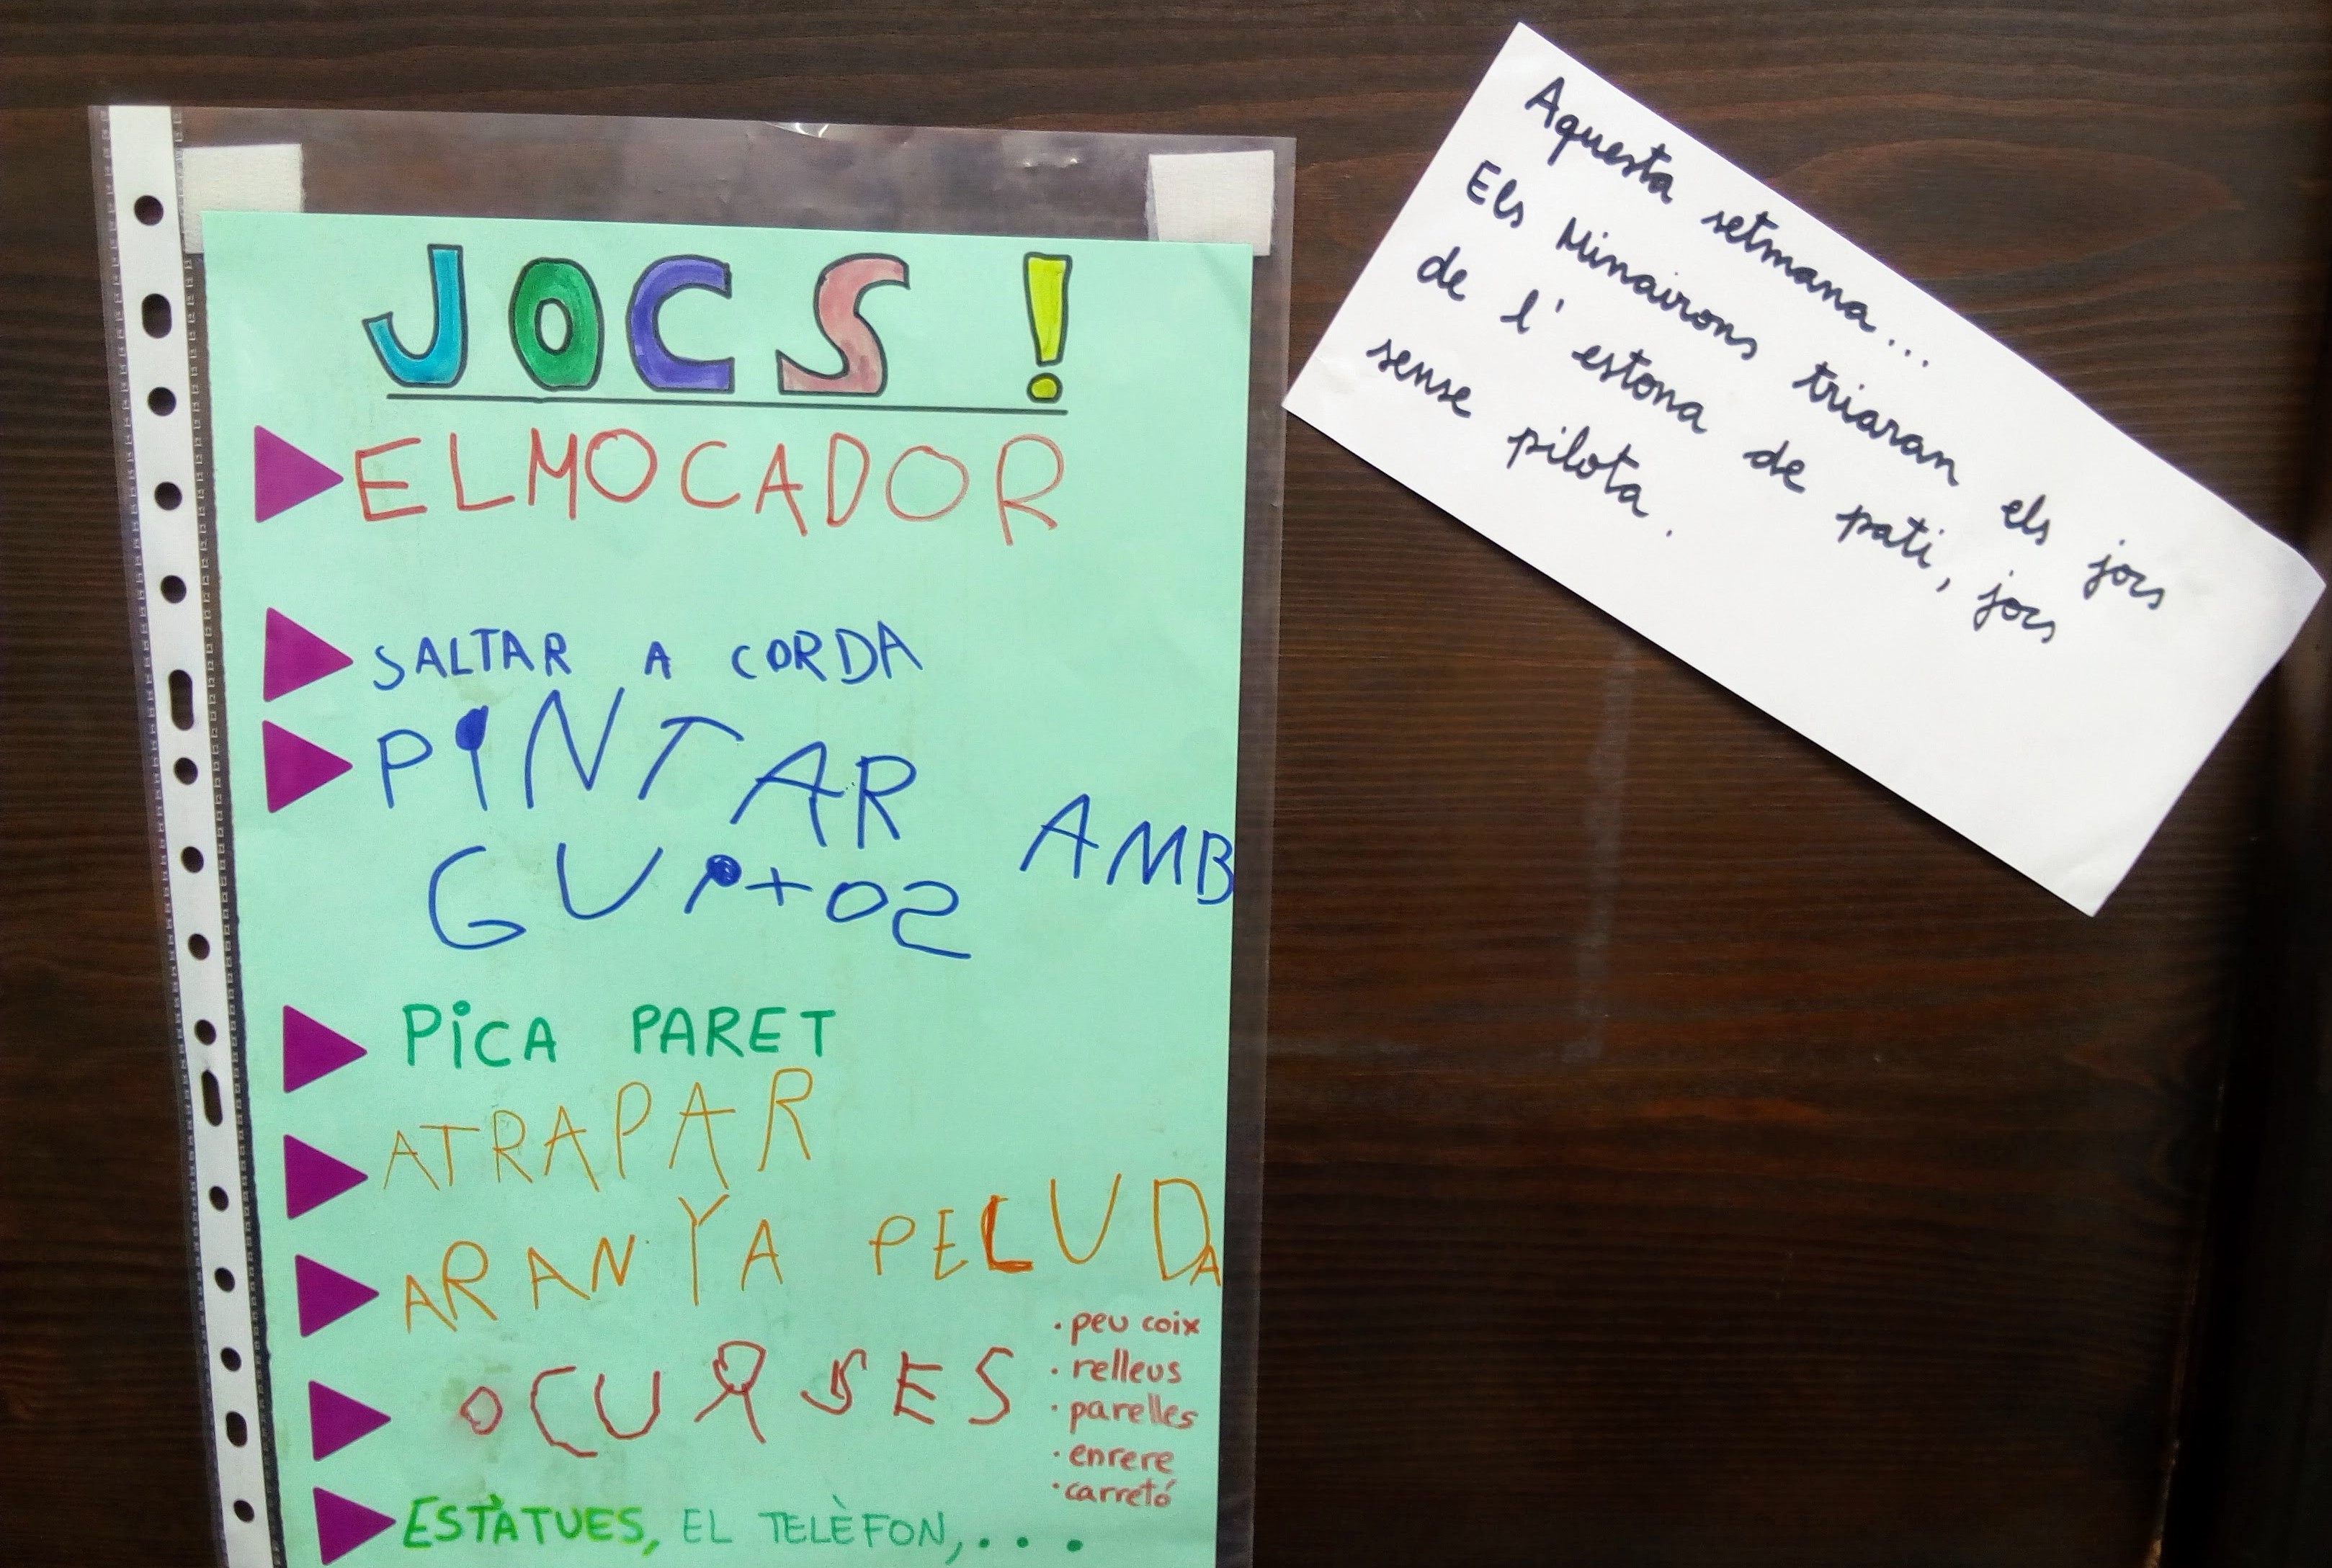 JOCS!
EL MOCADOR
SALTAR A CORDA
PINTAR AMB
GUIXOS
PICA PARET
ATRAPAR
ARANYA PELUDA
CURSES
· peu coix
· relleus
· parelles
· enrere
· carretó
ESTÀTUES, EL TELÈFON,...
Aquesta setmana...
Els Minairons triaran els jocs
de l'estona de pati, jocs
sense pilota.